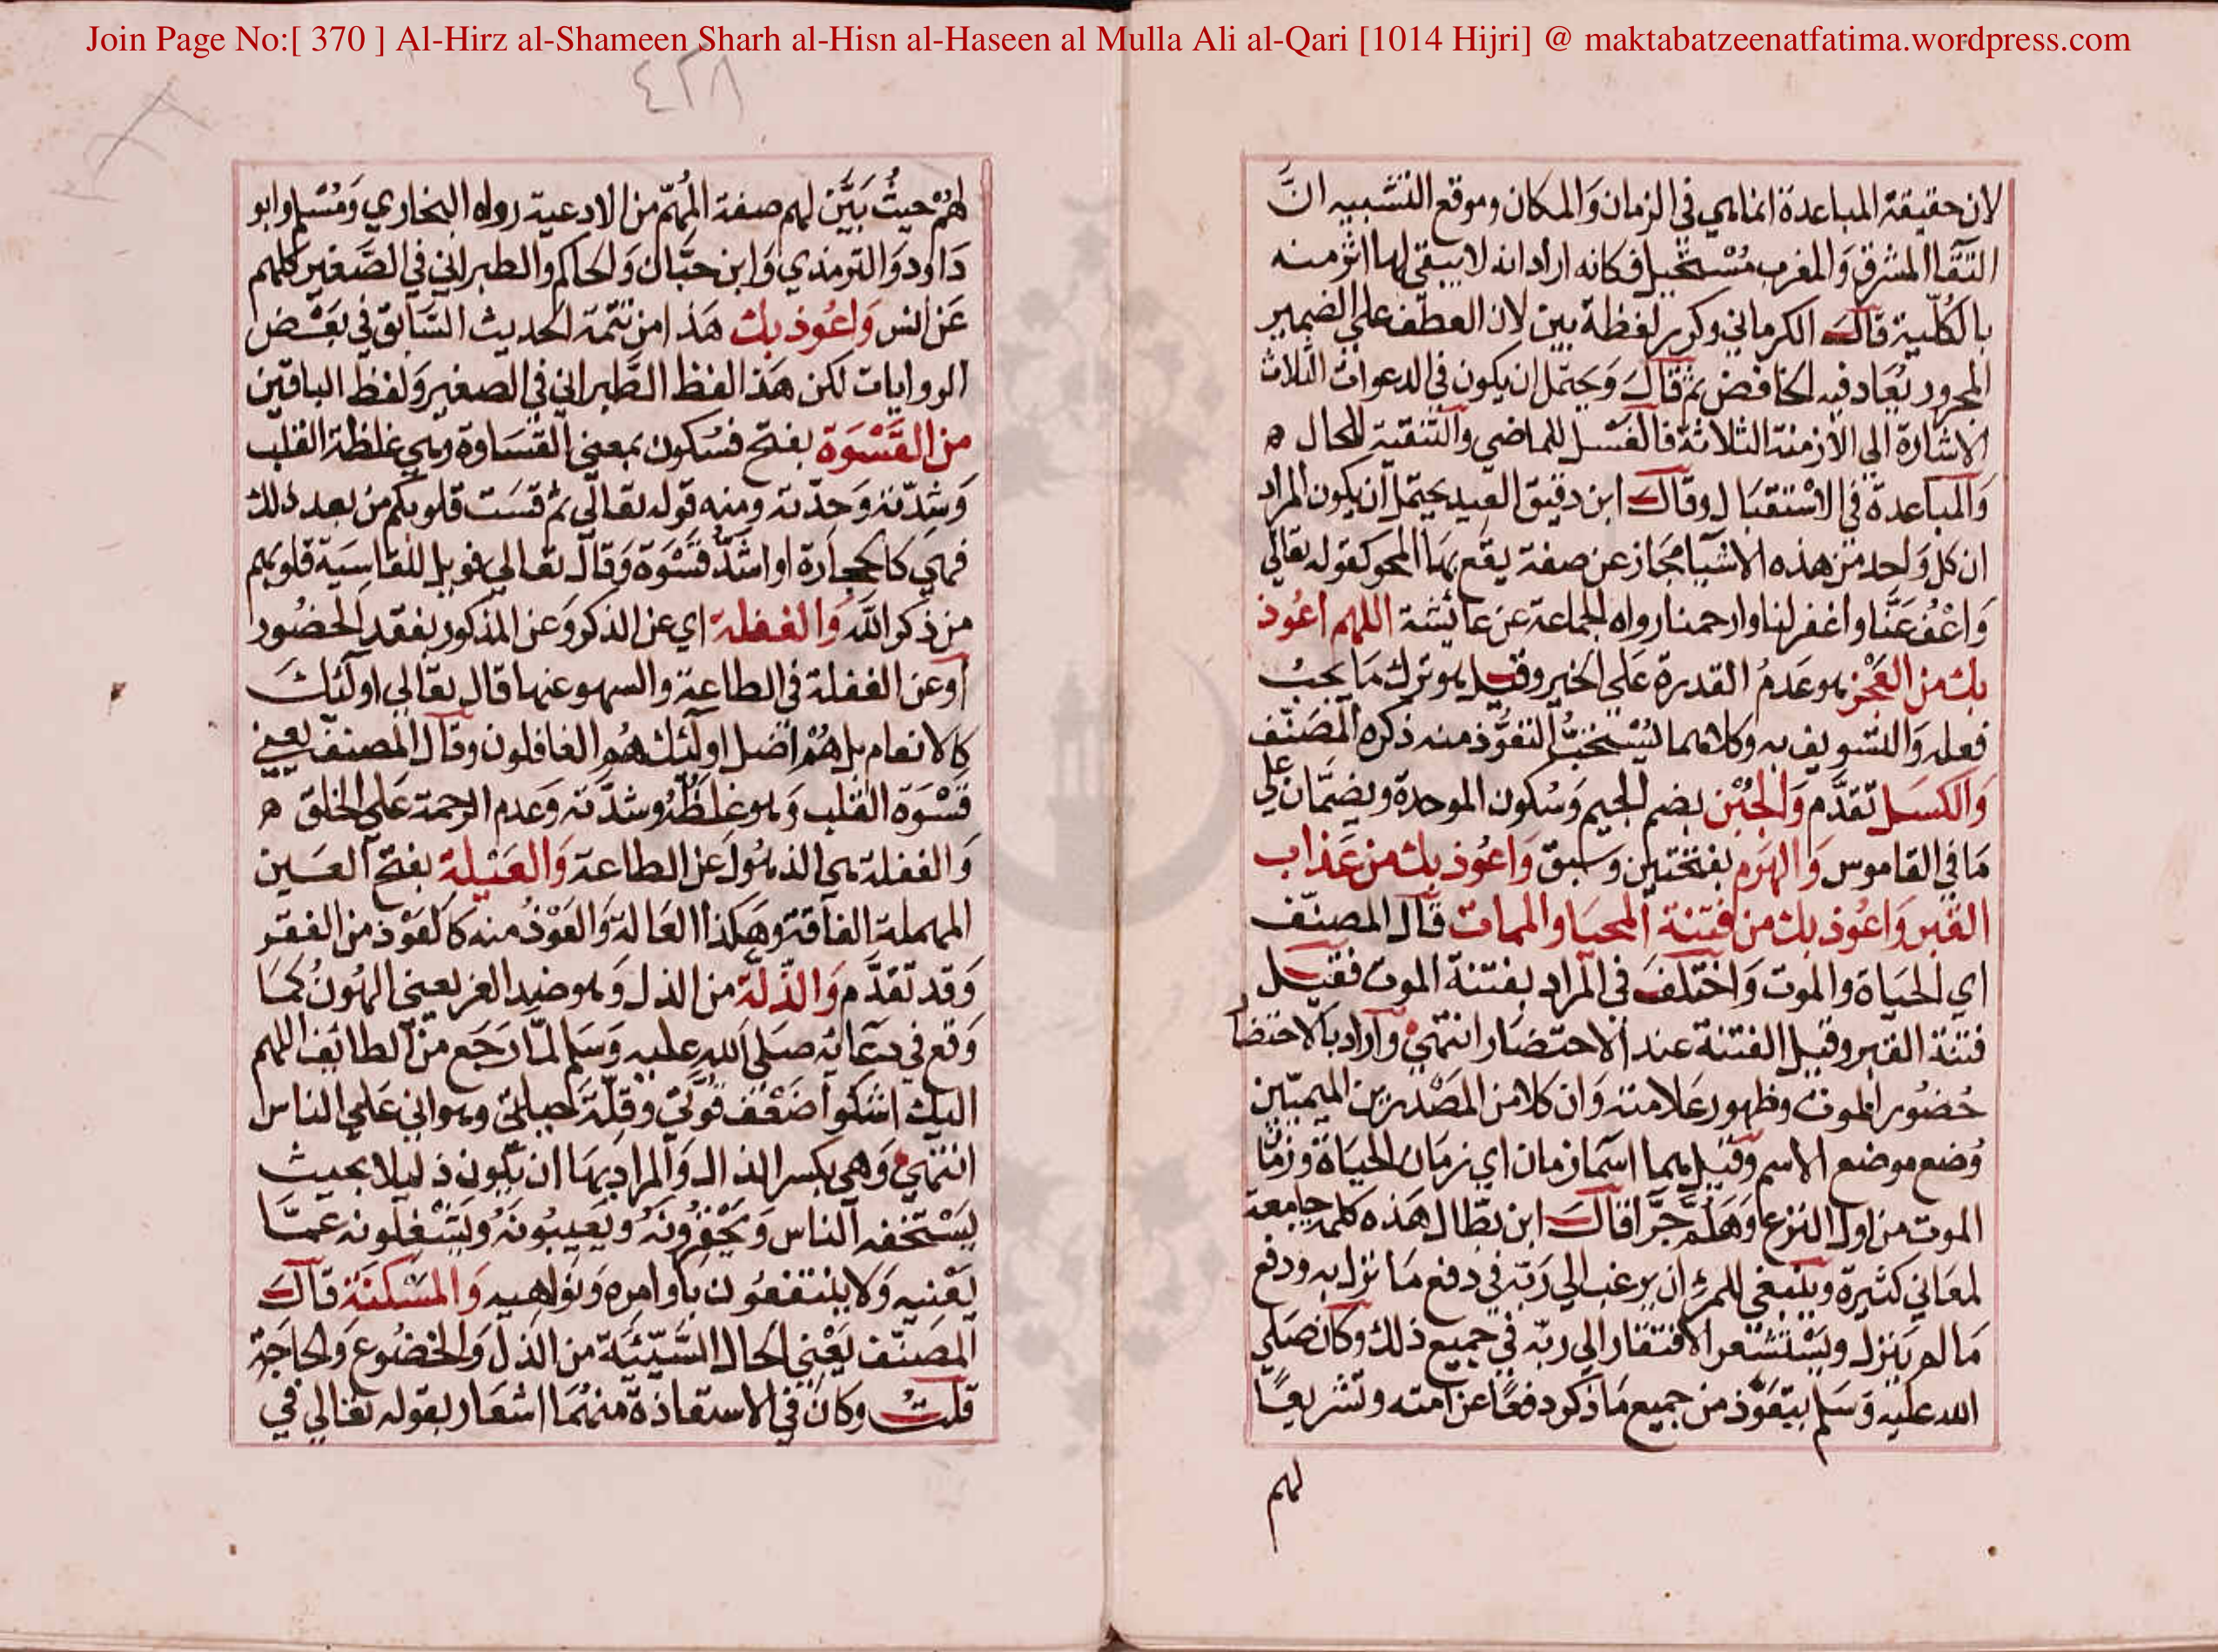 Join Page No:[ 370 ] Al-Hirz al-Shameen Sharh al-Hisn al-Haseen al Mulla Ali al-Qari [1014 Hijri] @ maktabatzeenatfatima.wordpress.com
لان حقيقة المباعدة انما هي في الزمان والمكان وموقع التشبيه انَّ
التقاا المشرق والمغرب مُسْتحيل فكانه اراد انه لا يبقي لها اثر منه
بالكُلّية قالَ الكرماني وكرر لفظة بين لان العطف علي الضمير
المجرور يُعَاد فيه الخافض ثم قالَ وَيحتمل ان يكون في الدعوات الثلاث
الاشارة الي الأزمنة الثلاثة فالغسْل للماضي والتنقية للحال ه
وَالمباعدة في الاسْتقبَال وقالَ ابن دقيق العيد يحتمل ان يكون المراد
ان كل وَاحد من هذه الاشيا مجاز عن صفة يقع بهَا المحو كقوله تعالي
وَاعْفُ عَنَّا واغفر لنا وارحمنا رواه الجماعة عن عائشة اللهم اعُوذ
بك من العَجْز هو عَدمُ القدرة عَلي الخير وقيل هو ترك مَا يجبُ
فعله وَالتسويف به وكلاهما يُسْتحبُّ التعَوُّذ منه ذكره المصَنّف
وَالكسَل تقدَّم وَالجُبْن بضم الجيم وَسُكون الموحدة وبضمَّان علي
مَا في القاموس وَالهَرَم بفتحتين وسَبق وَاعُوذ بك من عَذاب
القبر وَاعُوذ بك من فتنة المحيَا والممات قالَ المصنّف
اي الحيَاة والموت وَاختلفَ في المراد بفتنة الموت فقيل
فتنة القبر وقيل الفتنة عند الاحتضَار انتهي وَاراد بالاحتضا
حُضُور الموت وظهور عَلامته وَان كلا من المصْدرين الميميّين
وُضع موضع الاسم وَقيل هما اسمَا زمان اي زمَان الحيَاة وزمَا
الموت من اول النزع وَهَلُمَّ جَرَّا قالَ ابن بطّال هذه كلمة جامعة
لمعَاني كثيرة وينبغي للمرء ان يرغب الي رَبّه في دفع مَا نزل به ودفع
مَا لم يَنزل ويسْتشعر الافتقار الي ربّه في جميع ذلك وكانَ صَلي
الله عليه وَسَلم يتعَوَّذ من جميع مَا ذكر دفعًا عن امته وتشريعًا
لهم
٤٢٨
لهُمْ حيثُ بَيَّن لهم صفة المُهِمّ من الادعية رواه البخاري وَمُسْلم وابو
دَاود وَالترمذي وَابن حبَّان وَالحاكم والطبراني في الصَّغير كلهم
عَن انس وَاعُوذ بك هَذا من تتمة الحديث السَّابق في بعْض
الروايات لكن هَذا لفظ الطَّبراني في الصغير وَلفظ الباقين
من القَسْوَة بفتح فسُكون بمعني القسَاوة وهي غلظة القلب
وَشِدّته وَحِدّته ومنه قوله تعالي ثم قسَت قلوبكم من بعد ذلك
فهي كالحجَارة او اشَدُّ قسْوَة وَقالَ تعالي فويل للقاسيَة قلوبهم
من ذكر الله وَالغفلة اي عن الذكر وَعن المذكور بفقد الحضُور
اوعن الغفلة في الطاعة والسهو عنها قال تعالي اولئكَ
كالانعام بل هُمْ اضل اولئك هُم الغافلون وقالَ المصنف يعني
قسْوَة القلب وَهو غِلظُهُ وشدّته وَعدم الرحمة عَلي الخلق ه
وَالغفلة هي الذهُول عَن الطاعة وَالعَيْلة بفتح العَين
المهملة الفاقة وهَكذا العَالة وَالعَوْذُ منه كالعَوْذ من الفقر
وَقد تقدَّم وَالذّلّة من الذل وَهو ضد العز يعني الهُونُ كمَا
وَقع في دعَائه صَلي الله عليه وَسَلم لمَّا رَجَع من الطائف اللهم
اليك اشكو اضَعْف قُوَّتي وَقِلّة حيلتي وهواني عَلي الناس
انتهي وَهي بكسر الذال وَالمراد بهَا ان يَكون ذليلا بحيث
يَسْتخفه الناس وَيحْقرُونَهُ وَيَعيبُونَهُ وَيَشغلونه عَمَّا
يَعْنيه وَلا ينتفعُون باوامره وَنواهيه وَالمسْكنَة قالَ
المصَنّف يَعْني الحال السَّيّئَة من الذل وَالخضُوع وَالحاجَة
قلتُ وكانَ في الاستعَاذة منهُمَا اشعَار بقوله تعَالي في